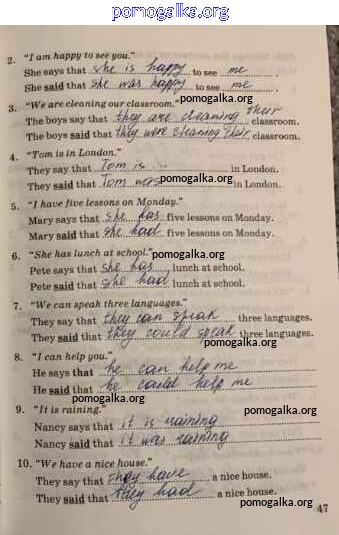 pomogalka.org
2. "I am happy to see you."
She says that she is happy to see me.
She said that she was happy to see me.
3. "We are cleaning our classroom." pomogalka.org
The boys say that they are cleaning their classroom.
The boys said that they were cleaning their classroom.
4. "Tom is in London."
They say that Tom is ... in London.
They said that Tom was pomogalka.org in London.
5. "I have five lessons on Monday."
Mary says that she has five lessons on Monday.
Mary said that she had five lessons on Monday.
6. "She has lunch at school." pomogalka.org
Pete says that she has lunch at school.
Pete said that she had lunch at school.
7. "We can speak three languages." pomogalka.org
They say that they can speak three languages.
They said that they could speak three languages.
8. "I can help you." pomogalka.org
He says that he can help me
He said that he could help me
9. "It is raining." pomogalka.org
Nancy says that it is raining
Nancy said that it was raining
10. "We have a nice house." pomogalka.org
They say that they have a nice house.
They said that they had a nice house.
47
pomogalka.org
pomogalka.org